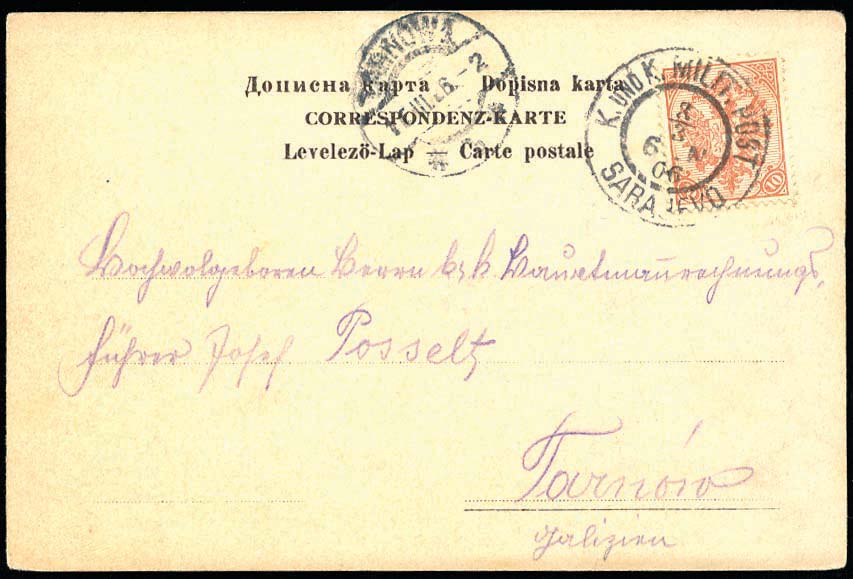 Дописна карта Dopisna karta
CORRESPONDENZ-KARTE
Levelező-Lap — Carte postale
K. UND K. MILIT. POST
SARAJEVO
06
10
Hochwolgeboren Herrn k. k. Hauptmannrechnungs,
führer Josef Posselt
Tarnów
Galizien